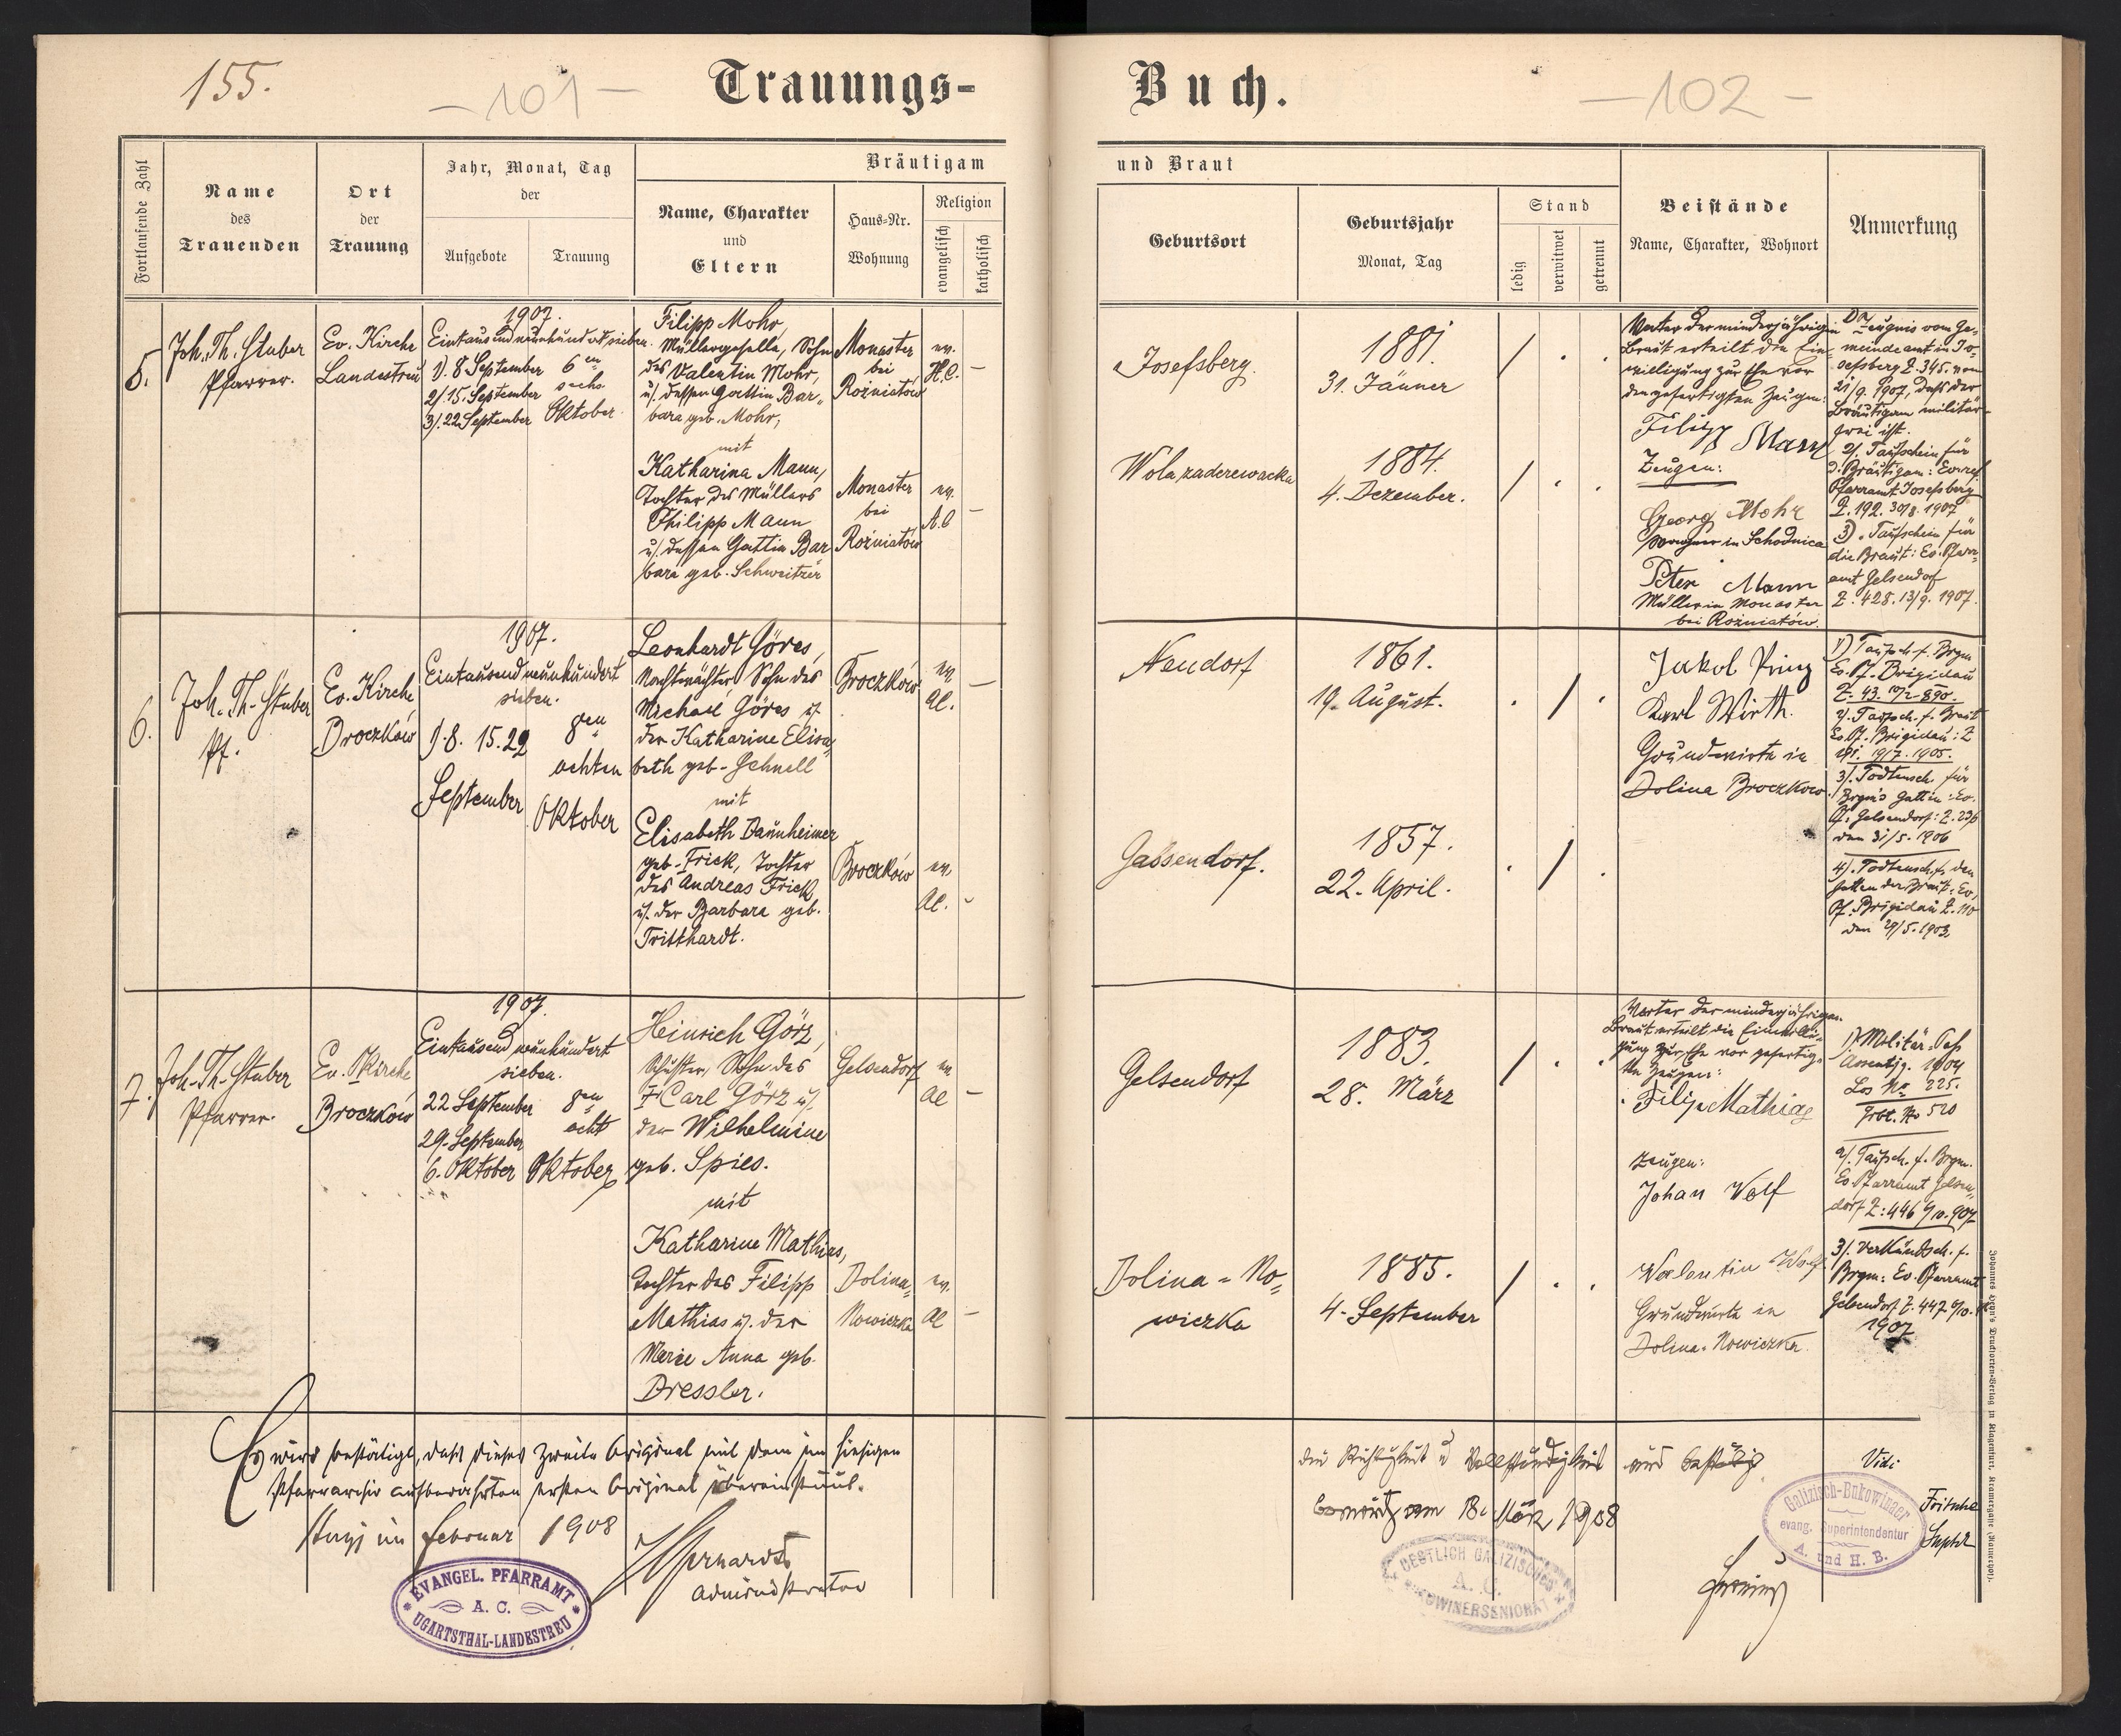 155.
– 101 –
Trauungs-
Fortlaufende Zahl
Name
des
Trauenden
Ort
der
Trauung
Jahr, Monat, Tag
der
Aufgebote
Trauung
Bräutigam
Name, Charakter
und
Eltern
Haus-Nr.
Wohnung
Religion
evangelisch
katholisch
5.
Joh. Th. Stuber
Pfarrer.
Ev. Kirche
Landestreu
1907.
Eintausendneunhundertsieben.
1). 8 September
2/. 15. September
3/. 22 September
6en
sechs
Oktober.
Filipp Mohr,
Müllergeselle, Sohn
des Valentin Mohr,
u/. dessen Gattin Bar-
bara geb. Mohr,
mit
Katharina Mann,
Tochter des Müllers
Philipp Mann
u/. dessen Gattin Bar
bara geb. Schweitzer
Monaster
bei
Rożniatów
ev.
H.C. –
Monaster
bei
Rożniatów
ev.
A.C –
6.
Joh. Th. Stuber
Pf.
Ev. Kirche
Broczków
1907.
Eintausendneunhundert
sieben.
1). 8. 15. 22
September
8en
achten
Oktober
Leonhardt Göres,
Nachtwächter, Sohn des
Michael Göres u/.
der Katharine Elisa-
beth geb. Schnell
mit
Elisabeth Dannheimer
geb. Frick, Tochter
des Andreas Frick
u/. der Barbara geb.
Tritthardt.
Broczków
ev.
AC. –
Broczków
ev.
AC. -
7.
Joh. Th. Stuber
Pfarrer.
Ev. Kirche
Broczków
1907.
Eintausend neunhundert
sieben.
22 September
29. September
6. Oktober
8en
acht
Oktober
Heinrich Görz,
Schuster, Sohn des
† Carl Görz u/.
der Wilhelmine
geb. Spies.
mit
Katharine Mathias,
Tochter des Filipp
Mathias u/. der
Marie Anna geb.
Dressler.
Gelsendorf
ev
AC –
Dolina-
Nowiczka
ev.
AC –
Es wird bestätigt, daß dieses zweite Original mit dem im hiesigen
Pfarrarchiv aufbewahrten ersten Original übereinstimmt.
Stryj im Februar 1908
Administrator
EVANGEL. PFARRAMT
A. C.
UGARTSTHAL-LANDESTREU
Buch.
– 102 –
und Braut
Geburtsort
Geburtsjahr
Monat, Tag
Stand
ledig
verwitwet
getrennt
Beistände
Name, Charakter, Wohnort
Anmerkung
Josefsberg.
1881.
31. Jänner
/ . .
Wola zaderewacka
1884.
4. Dezember.
/ . .
Vater der minderjährigen
Braut erteilt die Ein-
willigung zur Ehe vor
den gefertigten Zeugen:
Filipp Mann
Zeugen:
Georg Mohr
in Schodnica
Peter Mann
Müller in Monaster
bei Rożniatów.
1) Zeugnis vom Ge-
meindeamt in Jo-
sefsberg Z. 345. vom
21/9. 1907, daß der
Bräutigam militär-
frei ist.
2/. Taufschein für
d. Bräutigam: Ev. ref.
Pfarramt Josefsberg
Z. 192. 30/8. 1907
3). Taufschein für
die Braut: Ev. Pfarr-
amt Gelsendorf
Z. 428. 13/9. 1907.
Neudorf
1861.
19. August.
. / .
Gassendorf.
1857.
22. April.
. / .
Jakob Prinz
Karl Wirth.
Grundwirte in
Dolina Broczkow.
1) Taufsch. f. Brgm
Ev. Pf. Brigidau
Z. 43. 10/2. 890.
2/. Taufsch. f. Braut
Ev. Pf. Brigidau: Z
19/7. 1905.
3/. Todtensch. für
Brgm's Gattin: Ev.
Pf. Gelsendorf: Z. 236
den 31/5. 1906
4). Todtensch. f. den
Gatten der Braut: Ev.
Pf. Brigidau Z. 110
den 29/5. 1903
Gelsendorf
1883.
28. März
/ . .
Dolina = No-
wiczka
1885.
4. September
/ . .
Vater der minderjährigen
Braut erteilt die Einwilli-
gung zur Ehe vor gefertig-
ten Zeugen:
Filip Mathias
Zeugen:
Johan Wolf
Valentin Wolf
Grundwirte in
Dolina-Nowiczka.
1) Militär-Paß
Assentjg. 1904
Los No 225.
No 520
2/. Taufsch. f. Brgm.
Ev. Pfarramt Gelsen-
dorf Z: 446 6/10. 907
3/. Verkündsch. f.
Brgm: Ev. Pfarramt
Gelsendorf Z. 447 6/10.
1907
Die Richtigkeit u Vollständigkeit wird bestätigt
am 18. März 1908
OESTLICH GALIZISCHES
A. C.
BUKOWINERSENIORAT
Vidi
Galizisch-Bukowinaer
evang. Superintendentur
A. und H. B.
Fritsche
Supdt